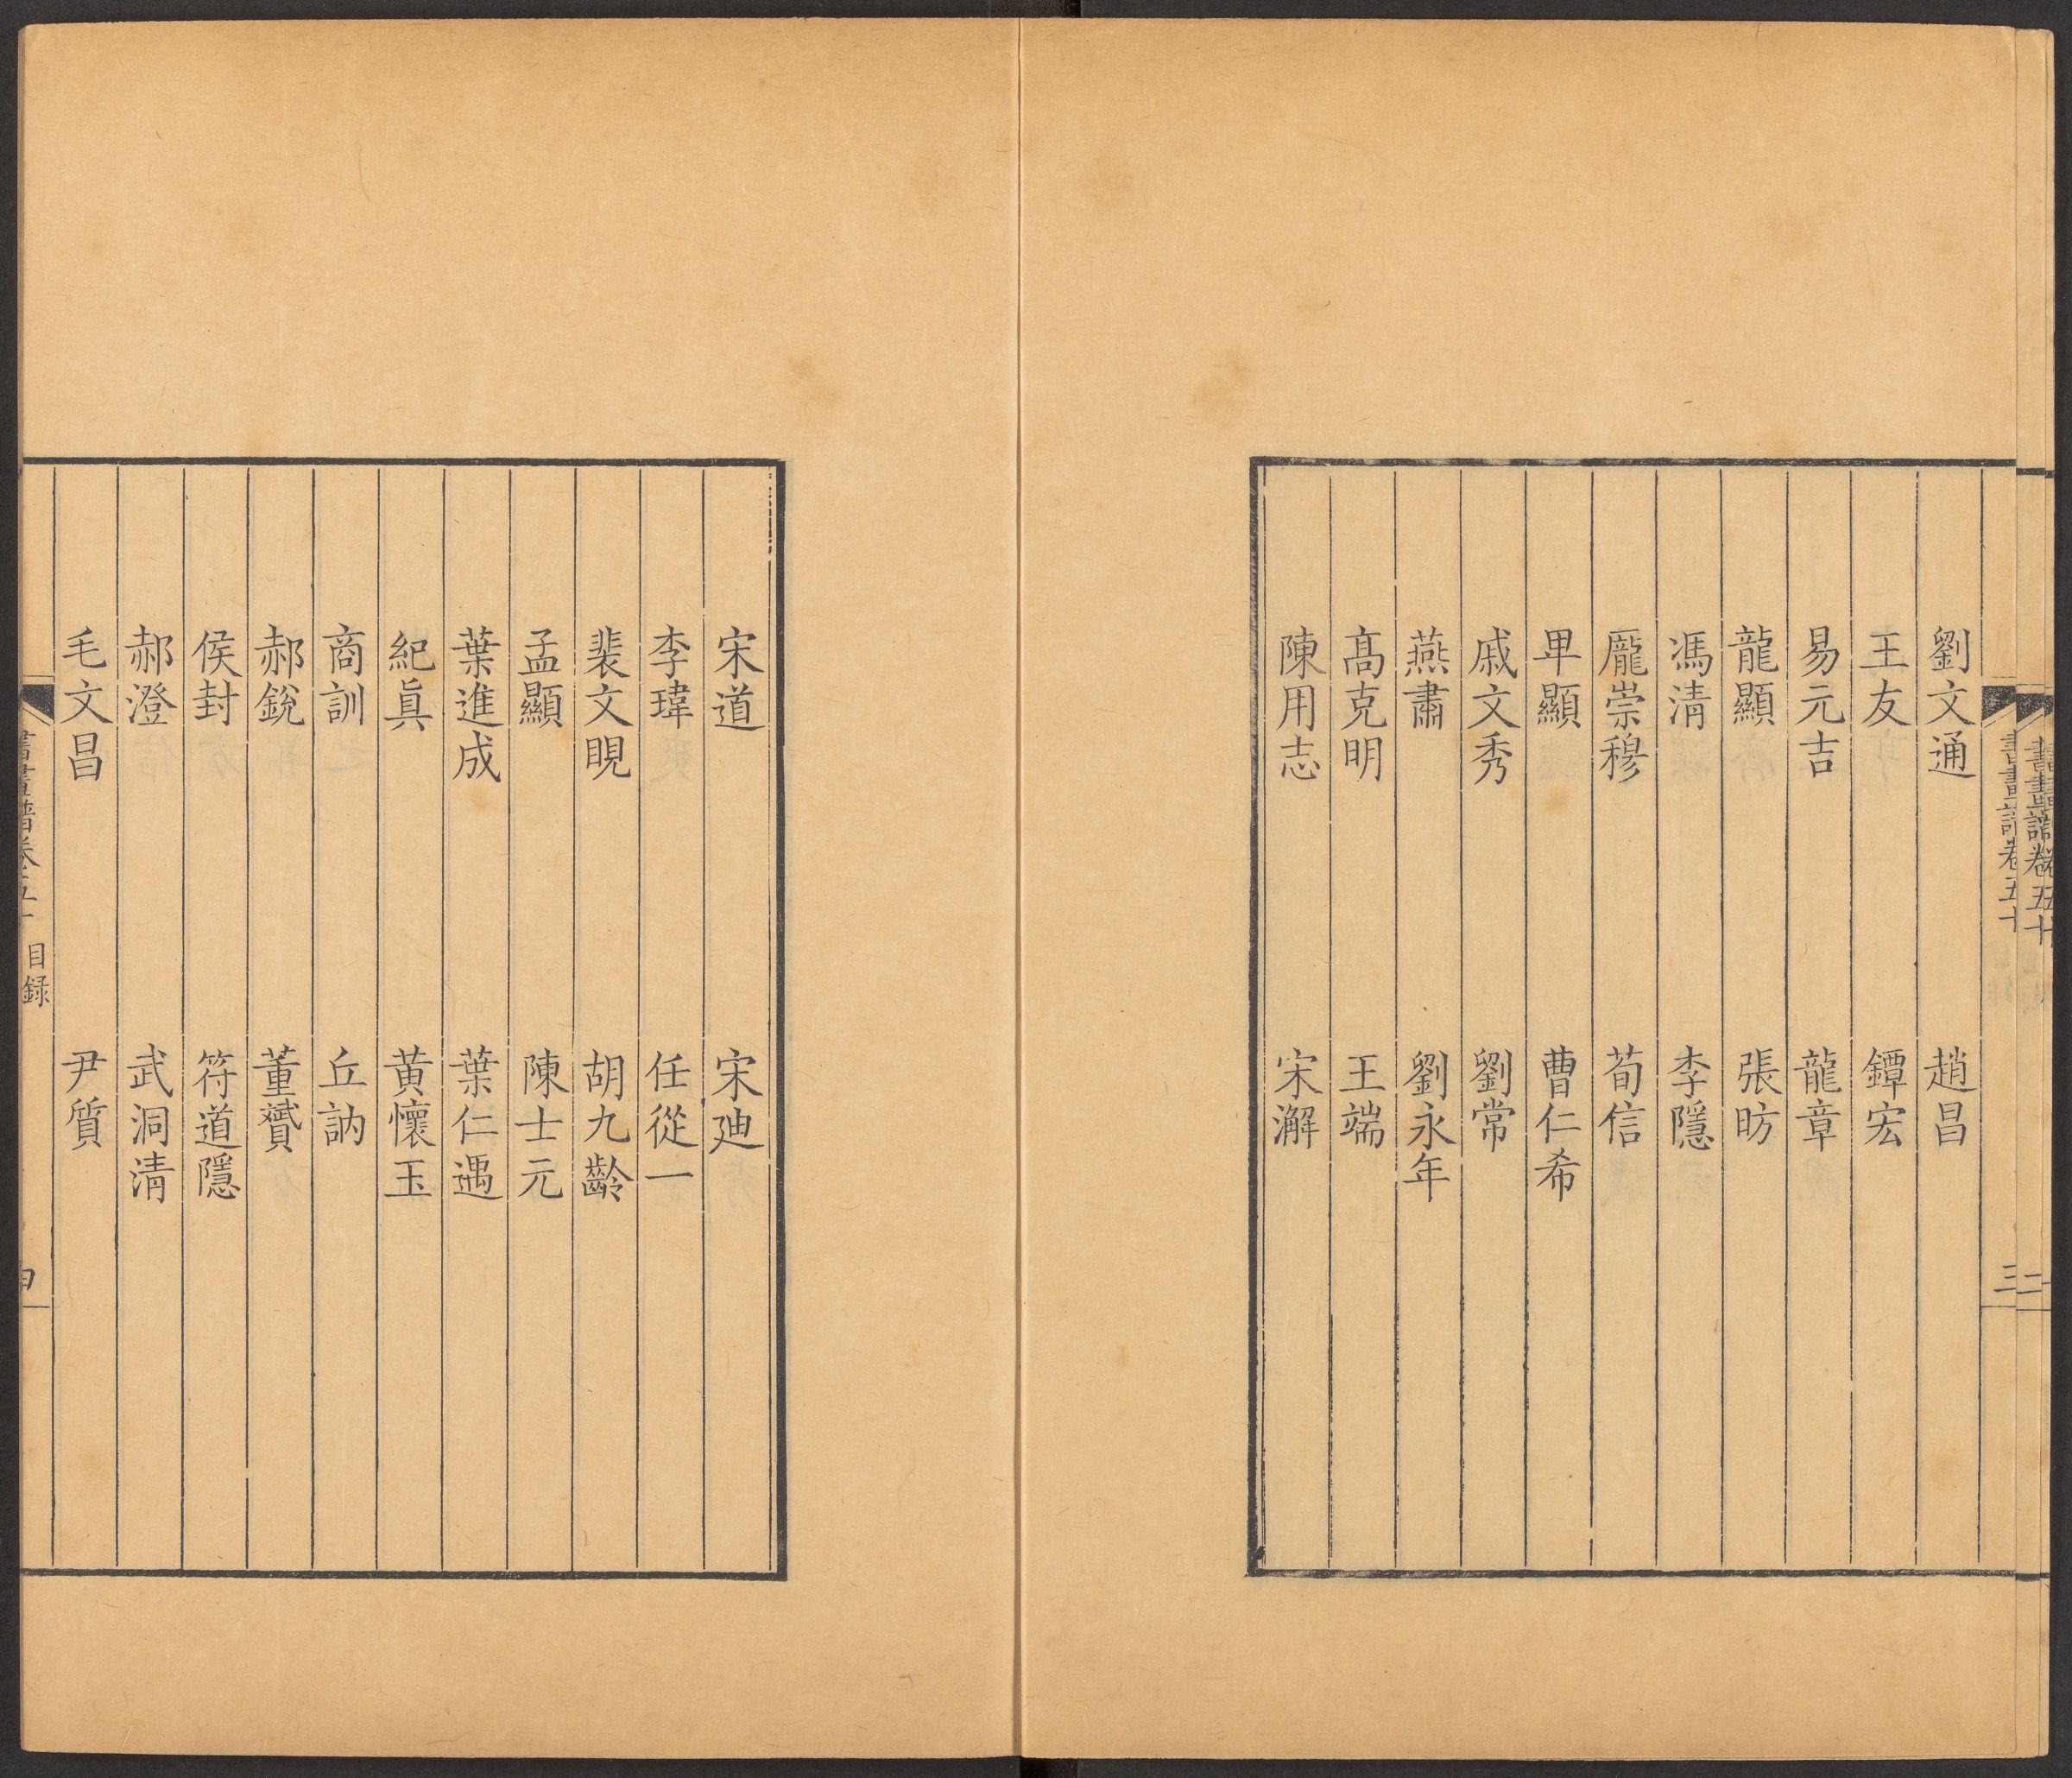 書畫譜卷五十
二
書畫譜卷五十
三
劉文通 趙昌
王友 鐔宏
易元吉 龍章
龍顯 張昉
馮清 李隱
龐崇穆 荀信
畢顯 曹仁希
戚文秀 劉常
燕肅 劉永年
髙克明 王端
陳用志 宋澥
宋道 宋迪
李瑋 任從一
裴文睍 胡九齡
孟顯 陳士元
葉進成 葉仁遇
紀眞 黄懷玉
商訓 丘訥
郝銳 董贇
侯封 符道隱
郝澄 武洞清
毛文昌 尹質
書畫譜卷五十 目録